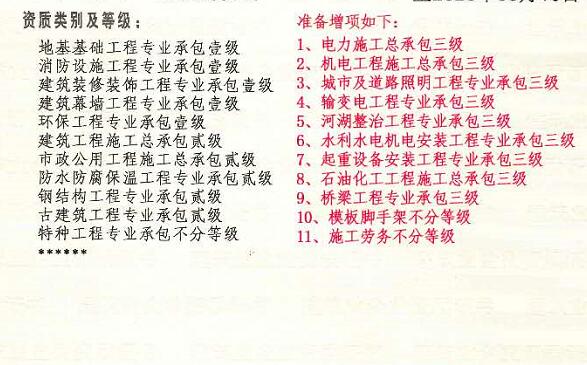 资质类别及等级：
地基基础工程专业承包壹级
消防设施工程专业承包壹级
建筑装修装饰工程专业承包壹级
建筑幕墙工程专业承包壹级
环保工程专业承包壹级
建筑工程施工总承包贰级
市政公用工程施工总承包贰级
防水防腐保温工程专业承包贰级
钢结构工程专业承包贰级
古建筑工程专业承包贰级
特种工程专业承包不分等级
******
准备增项如下：
1、电力施工总承包三级
2、机电工程施工总承包三级
3、城市及道路照明工程专业承包三级
4、输变电工程专业承包三级
5、河湖整治工程专业承包三级
6、水利水电机电安装工程专业承包三级
7、起重设备安装工程专业承包三级
8、石油化工工程施工总承包三级
9、桥梁工程专业承包三级
10、模板脚手架不分等级
11、施工劳务不分等级